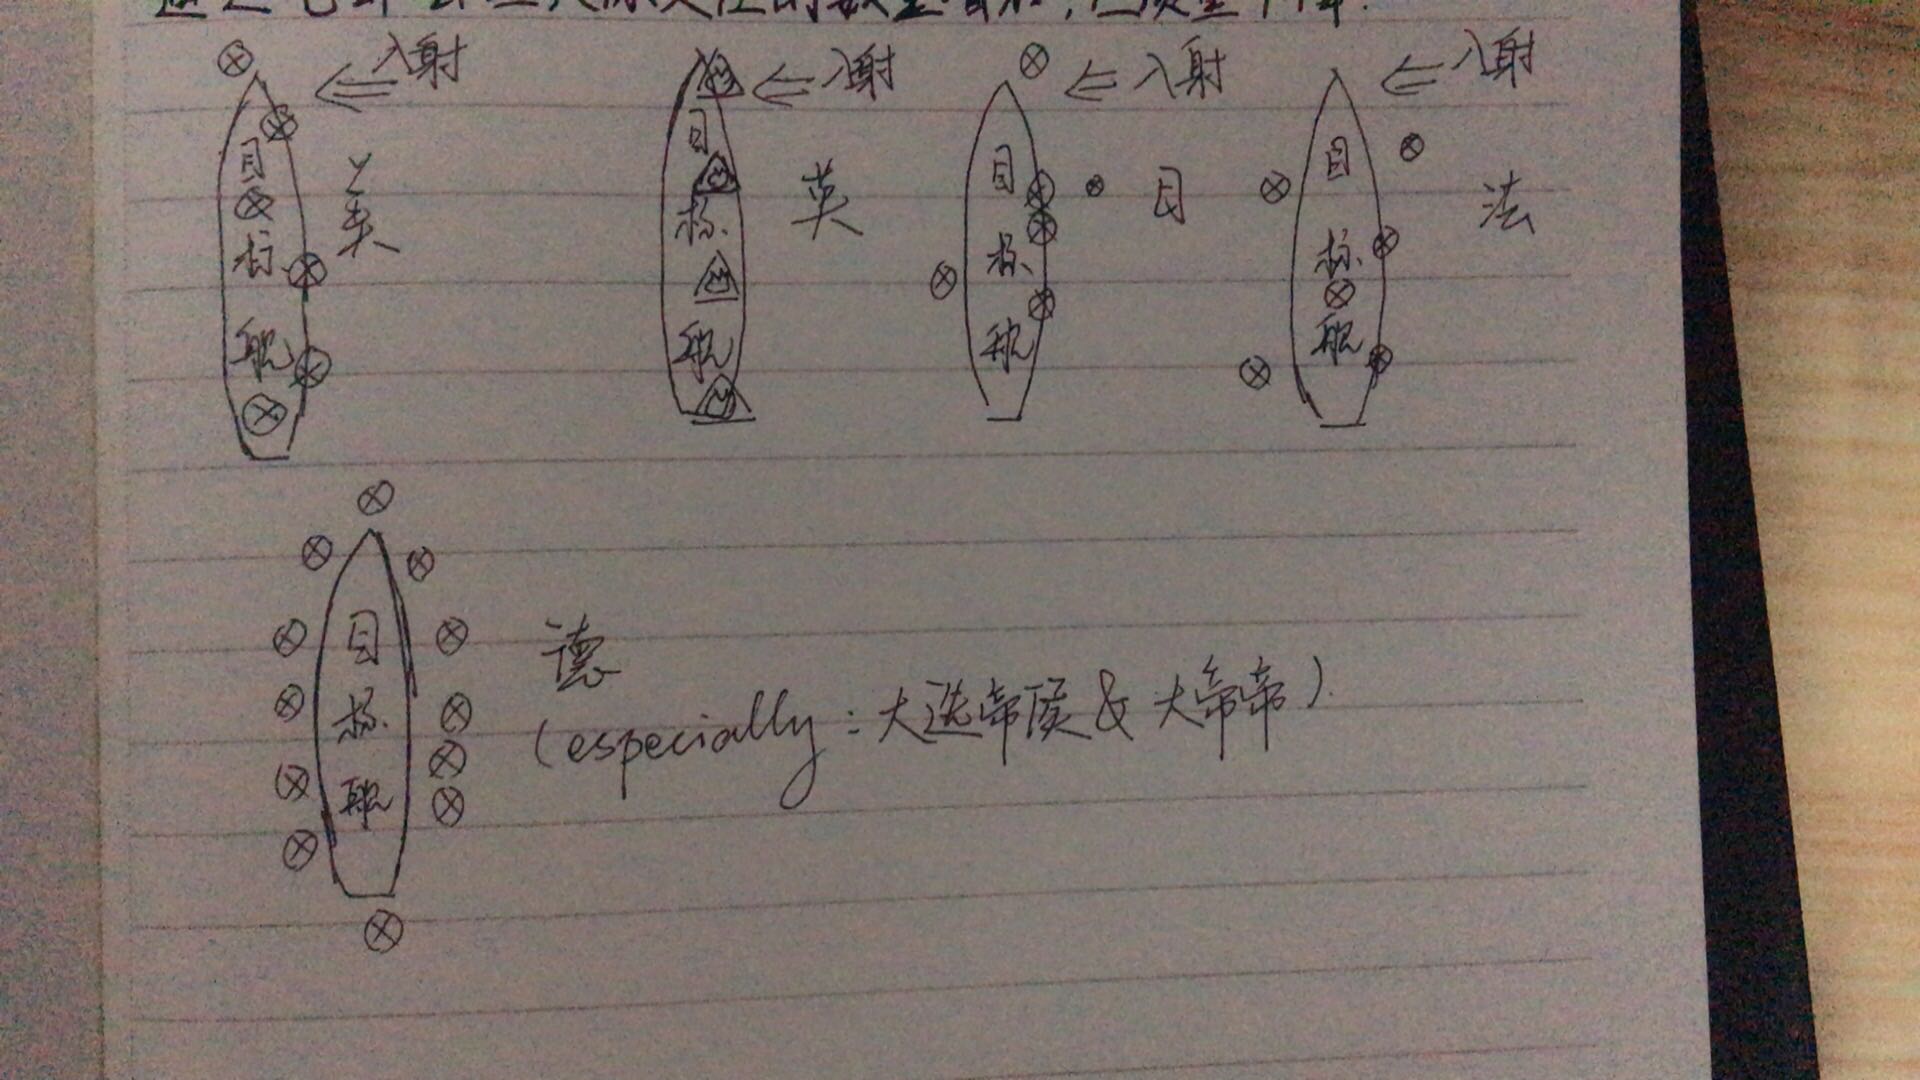 入射 入射 入射 入射
目标舰 美
目标舰 英
目标舰 日
目标舰 法
目标舰 德
(especially: 大选帝侯 & 大帝帝)